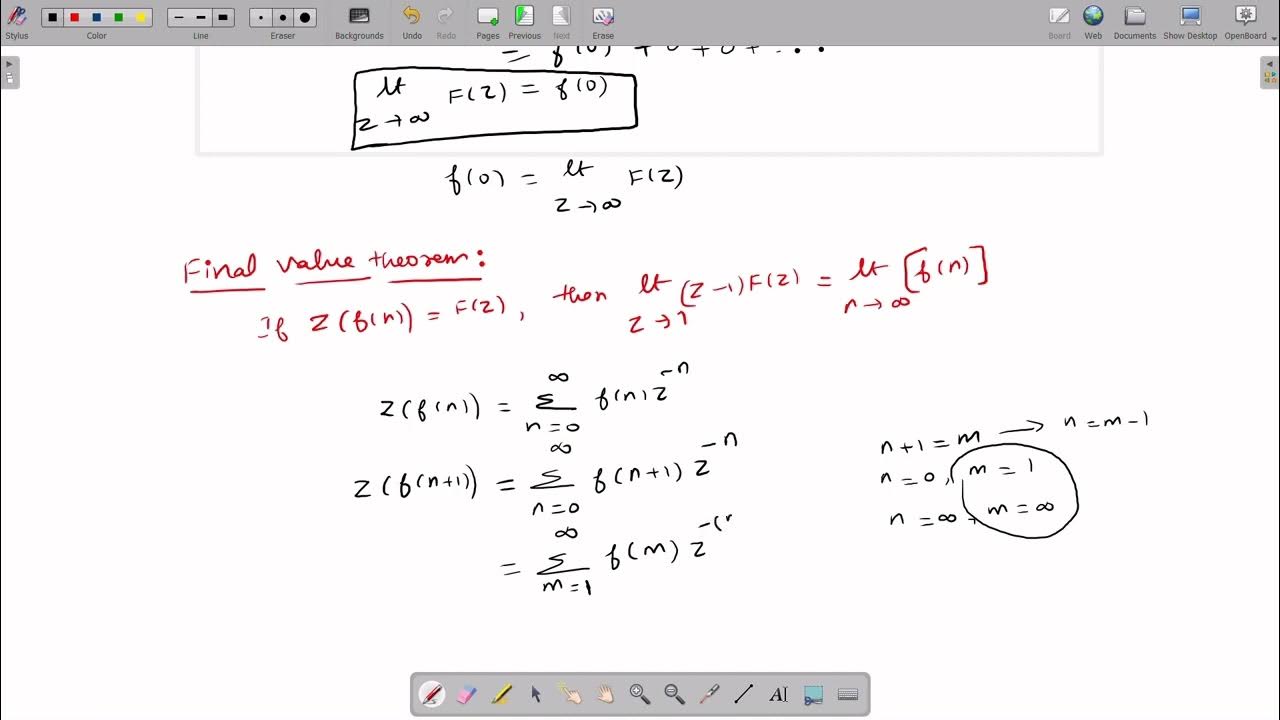 Stylus Color Line Eraser Backgrounds Undo Redo Pages Previous Next Erase Board Web Documents Show Desktop OpenBoard
= f(0) + 0 + 0 + ...
lt F(z) = f(0)
z → ∞
f(0) = lt F(z)
z → ∞
Final value theorem:
If Z(f(n)) = F(z), then lt (z-1)F(z) = lt [f(n)]
z → 1 n → ∞
Z(f(n)) = ∞ Σ n=0 f(n) z^-n
n+1 = m → n = m-1
Z(f(n+1)) = ∞ Σ n=0 f(n+1) z^-n
n = 0, m = 1
n = ∞ m = ∞
= ∞ Σ m=1 f(m) z^-(